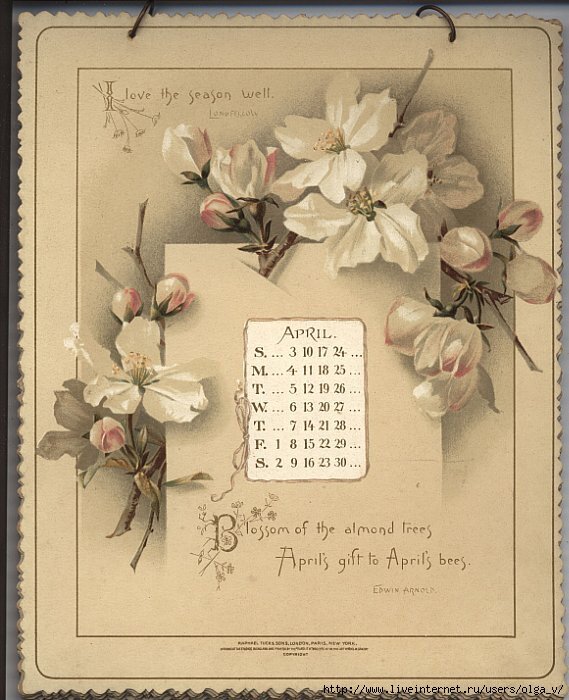 I love the season well.
LONGFELLOW
APRIL.
S. ... 3 10 17 24 ...
M. ... 4 11 18 25 ...
T. ... 5 12 19 26 ...
W. ... 6 13 20 27 ...
T. ... 7 14 21 28 ...
F. 1 8 15 22 29 ...
S. 2 9 16 23 30 ...
Blossom of the almond trees
April's gift to April's bees.
EDWIN ARNOLD.
RAPHAEL TUCK & SONS, LONDON, PARIS, NEW YORK.
COPYRIGHT
http://www.liveinternet.ru/users/olga_v/